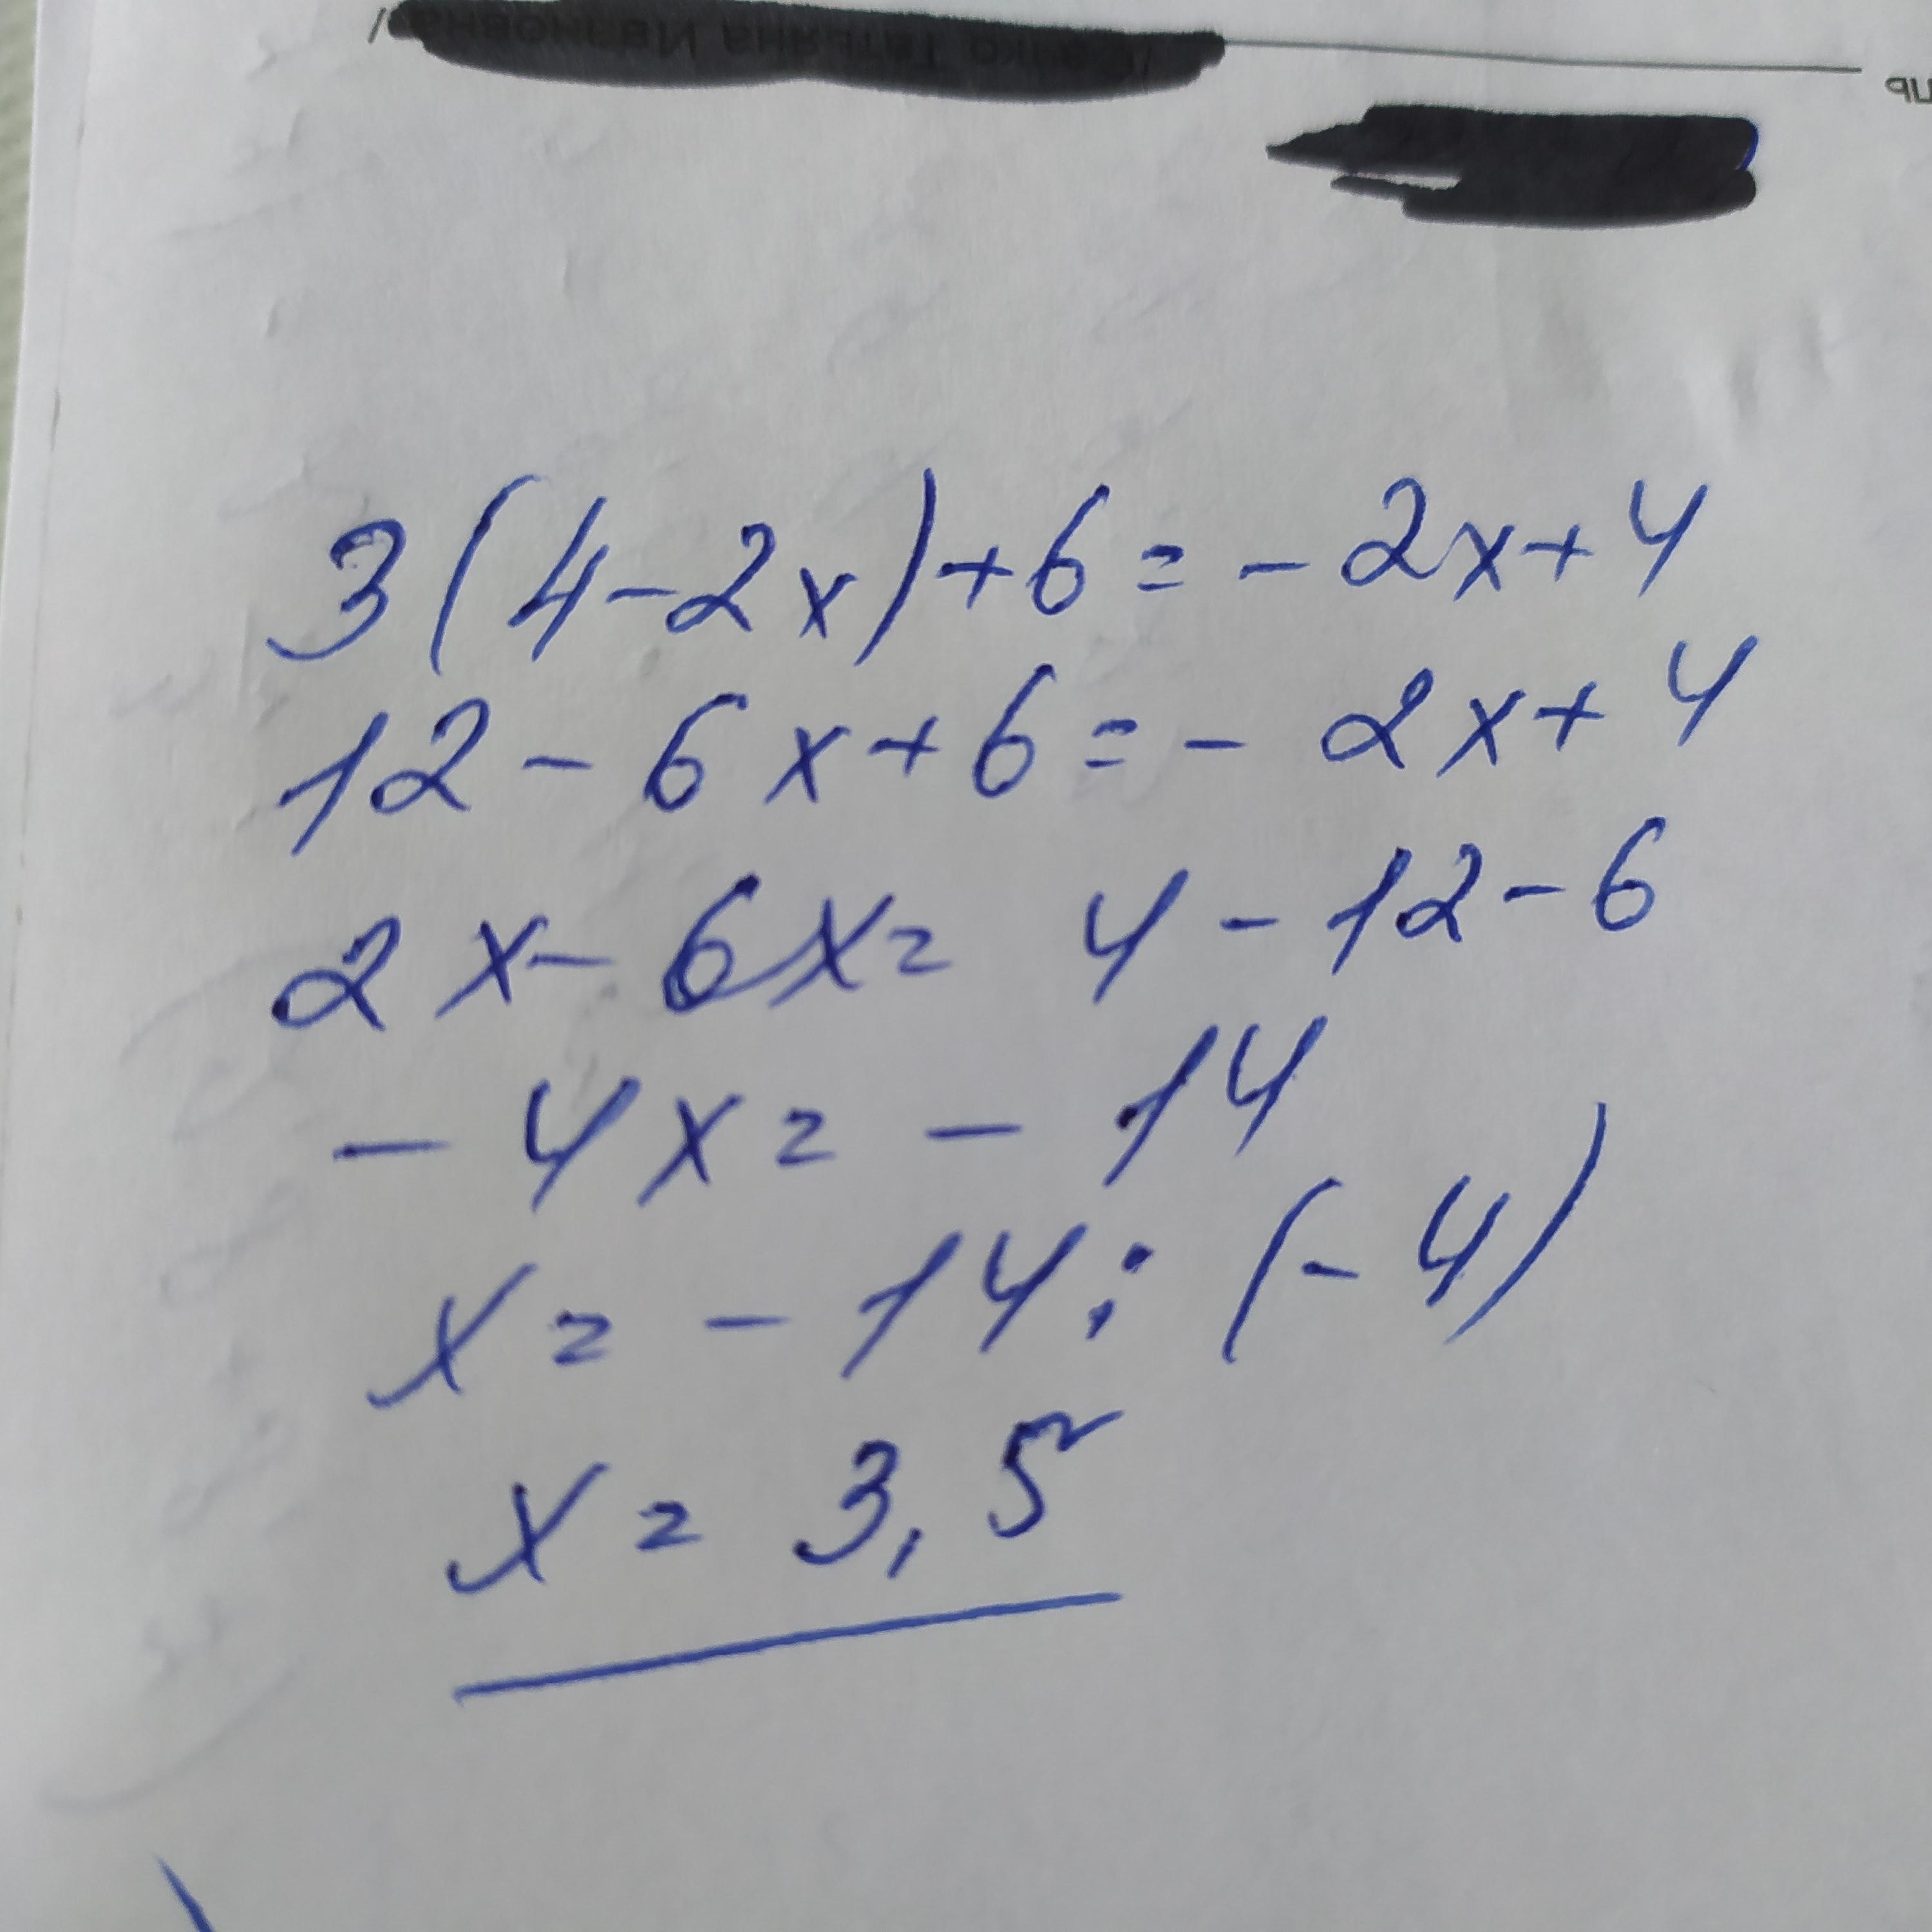 3(4-2x)+6=-2x+4
12-6x+6=-2x+4
2x-6x=4-12-6
-4x=-14
x=-14:(-4)
x=3,5